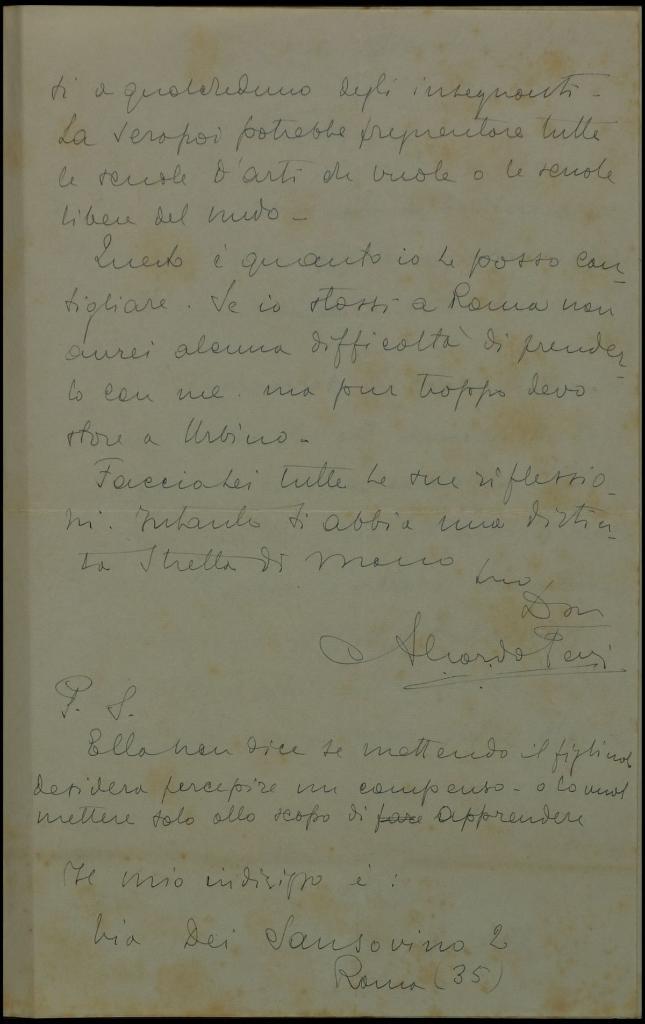 ti a qualcheduno degli insegnanti -
La sera poi potrebbe frequentare tutte
le scuole d'arti che vuole o le scuole
libere del nudo -
Questo è quanto io le posso con-
sigliare. Se io stassi a Roma non
avrei alcuna difficoltà di prender-
lo con me. ma pur troppo devo
stare a Urbino -
Faccia Lei tutte le sue riflessio-
ni. Intanto si abbia una distin-
ta Stretta di mano
suo
P. S.
Ella non dice se mettendo il figliuol
desidera percepire un compenso - o lo vuol
mettere solo allo scopo di fare apprendere
Il mio indirizzo è :
Via Dei Sansovino 2
Roma (35)